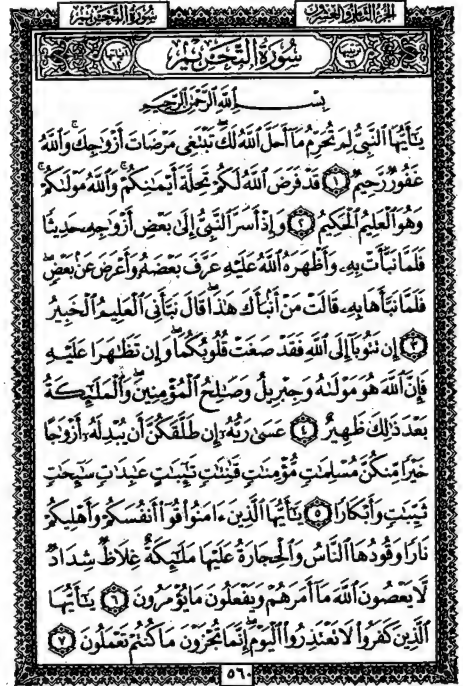 الجزء الثامن والعشرون
سُورَةُ التَّحْرِيمِ
ترتيبها ٦٦
سُورَةُ التَّحْرِيمِ
آياتها ١٢
بِسْمِ ٱللَّهِ ٱلرَّحْمَٰنِ ٱلرَّحِيمِ
يَٰٓأَيُّهَا ٱلنَّبِىُّ لِمَ تُحَرِّمُ مَآ أَحَلَّ ٱللَّهُ لَكَۖ تَبْتَغِى مَرْضَاتَ أَزْوَٰجِكَۚ وَٱللَّهُ
غَفُورٌ رَّحِيمٌ ١ قَدْ فَرَضَ ٱللَّهُ لَكُمْ تَحِلَّةَ أَيْمَٰنِكُمْۚ وَٱللَّهُ مَوْلَىٰكُمْۖ
وَهُوَ ٱلْعَلِيمُ ٱلْحَكِيمُ ٢ وَإِذْ أَسَرَّ ٱلنَّبِىُّ إِلَىٰ بَعْضِ أَزْوَٰجِهِۦ حَدِيثًا
فَلَمَّا نَبَّأَتْ بِهِۦ وَأَظْهَرَهُ ٱللَّهُ عَلَيْهِ عَرَّفَ بَعْضَهُۥ وَأَعْرَضَ عَنۢ بَعْضٍۖ
فَلَمَّا نَبَّأَهَا بِهِۦ قَالَتْ مَنْ أَنۢبَأَكَ هَٰذَاۖ قَالَ نَبَّأَنِىَ ٱلْعَلِيمُ ٱلْخَبِيرُ
٣ إِن تَتُوبَآ إِلَى ٱللَّهِ فَقَدْ صَغَتْ قُلُوبُكُمَاۖ وَإِن تَظَٰهَرَا عَلَيْهِ
فَإِنَّ ٱللَّهَ هُوَ مَوْلَىٰهُ وَجِبْرِيلُ وَصَٰلِحُ ٱلْمُؤْمِنِينَۖ وَٱلْمَلَٰٓئِكَةُ
بَعْدَ ذَٰلِكَ ظَهِيرٌ ٤ عَسَىٰ رَبُّهُۥٓ إِن طَلَّقَكُنَّ أَن يُبْدِلَهُۥٓ أَزْوَٰجًا
خَيْرًا مِّنكُنَّ مُسْلِمَٰتٍ مُّؤْمِنَٰتٍ قَٰنِتَٰتٍ تَٰٓئِبَٰتٍ عَٰبِدَٰتٍ سَٰٓئِحَٰتٍ
ثَيِّبَٰتٍ وَأَبْكَارًا ٥ يَٰٓأَيُّهَا ٱلَّذِينَ ءَامَنُوا۟ قُوٓا۟ أَنفُسَكُمْ وَأَهْلِيكُمْ
نَارًا وَقُودُهَا ٱلنَّاسُ وَٱلْحِجَارَةُ عَلَيْهَا مَلَٰٓئِكَةٌ غِلَاظٌ شِدَادٌ
لَّا يَعْصُونَ ٱللَّهَ مَآ أَمَرَهُمْ وَيَفْعَلُونَ مَا يُؤْمَرُونَ ٦ يَٰٓأَيُّهَا
ٱلَّذِينَ كَفَرُوا۟ لَا تَعْتَذِرُوا۟ ٱلْيَوْمَۖ إِنَّمَا تُجْزَوْنَ مَا كُنتُمْ تَعْمَلُونَ ٧
٥٦٠